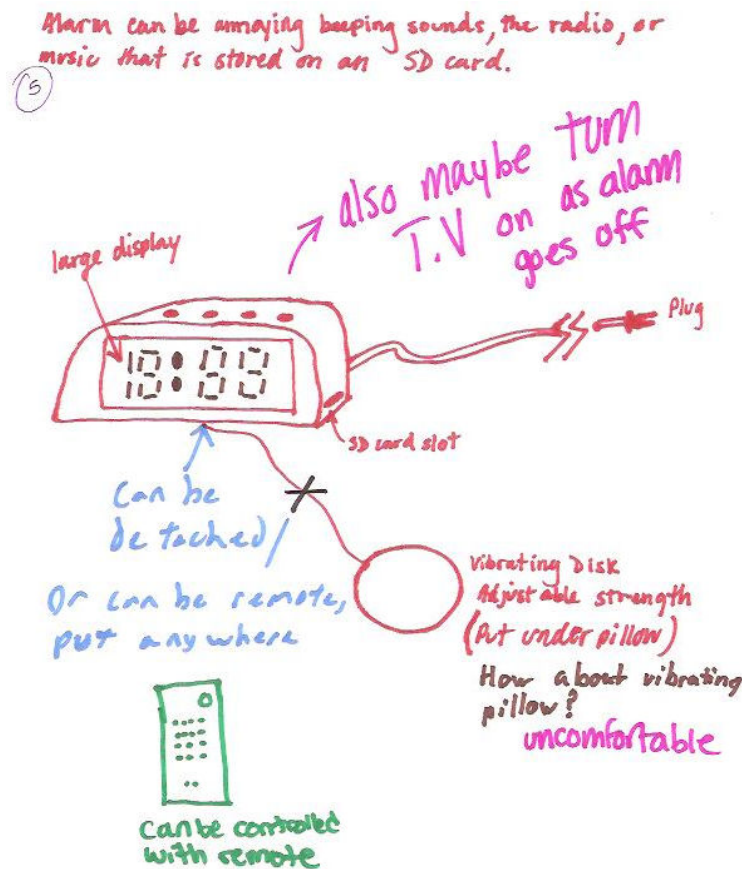 Alarm can be annoying beeping sounds, the radio, or
music that is stored on an SD card.
5
also maybe turn
T.V on as alarm
goes off
large display
Plug
18:89
SD card slot
Can be
detached/
Or can be remote,
put anywhere
Vibrating Disk
Adjustable strength
(Put under pillow)
How about vibrating
pillow?
uncomfortable
can be controlled
with remote